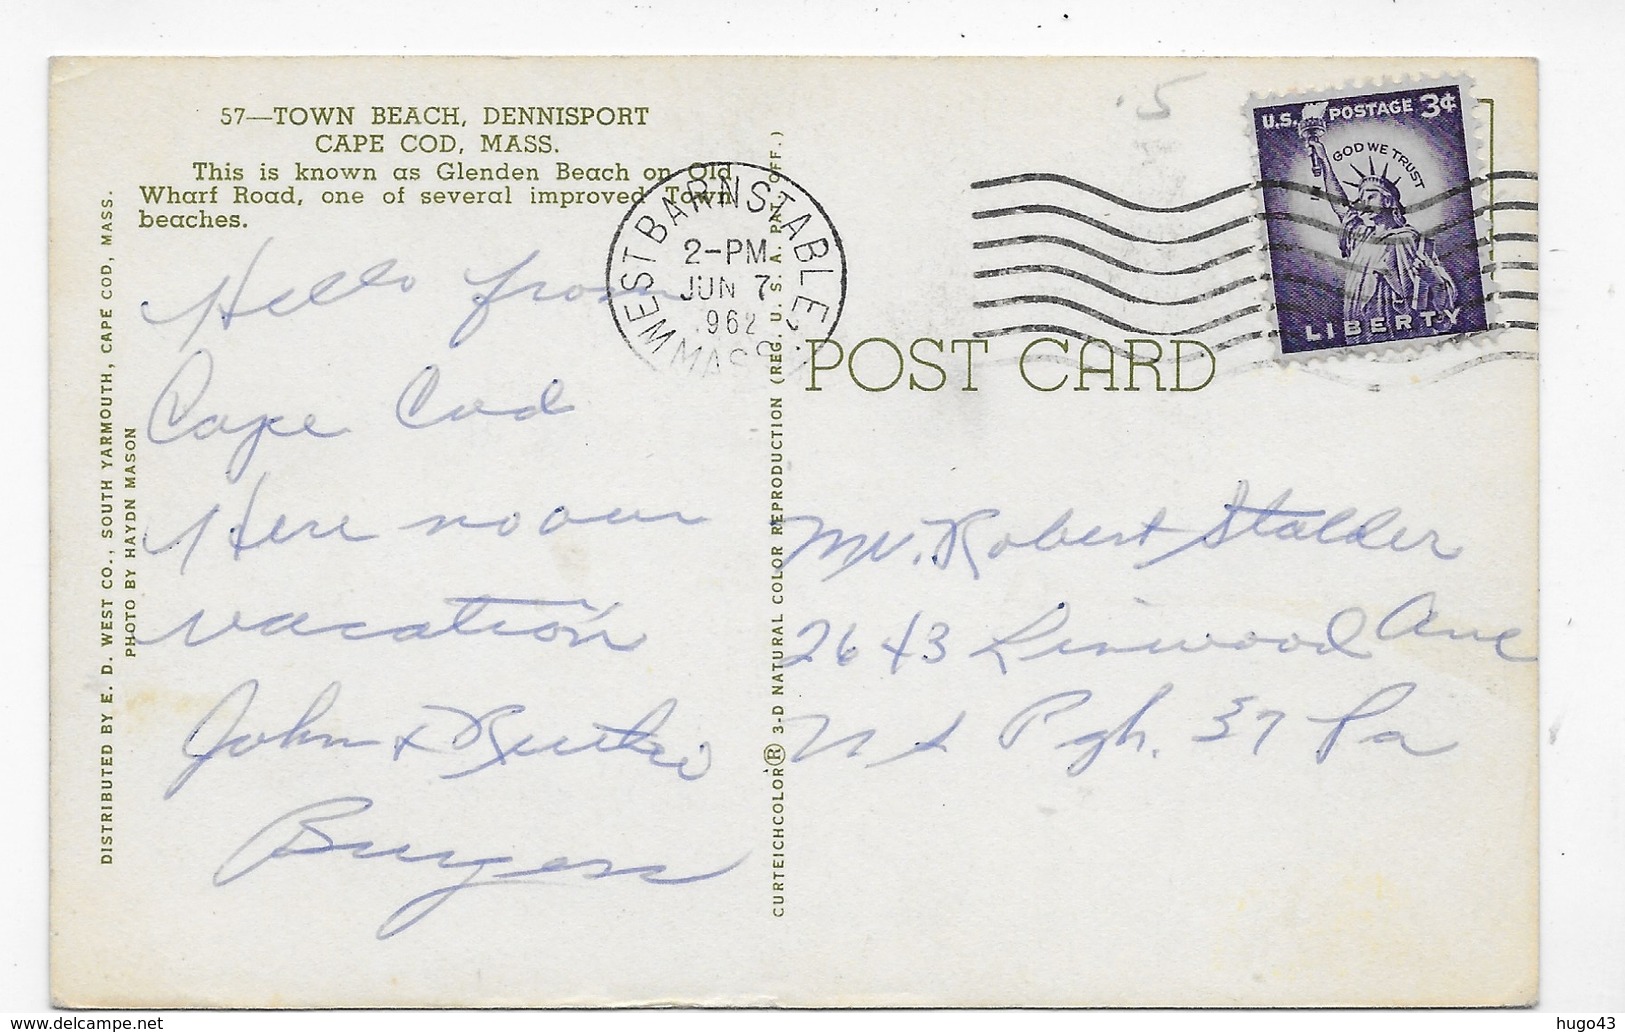 57—TOWN BEACH, DENNISPORT
CAPE COD, MASS.
This is known as Glenden Beach on Old
Wharf Road, one of several improved Town
beaches.
Hello from
Cape Cod
Here no our
vacation
John &
Burgess
DISTRIBUTED BY E. D. WEST CO., SOUTH YARMOUTH, CAPE COD, MASS.
PHOTO BY HAYDN MASON
WEST BARNSTABLE
2-PM
JUN 7
1962
MASS.
CURTEICHCOLOR® 3-D NATURAL COLOR REPRODUCTION (REG. U. S. A. PAT. OFF.)
POST CARD
.5
U.S. POSTAGE 3¢
GOD WE TRUST
LIBERTY
Mr. Robert Stalder
2643 Linwood Ave
N S Pgh. 37 Pa
hugo43
delcampe.net